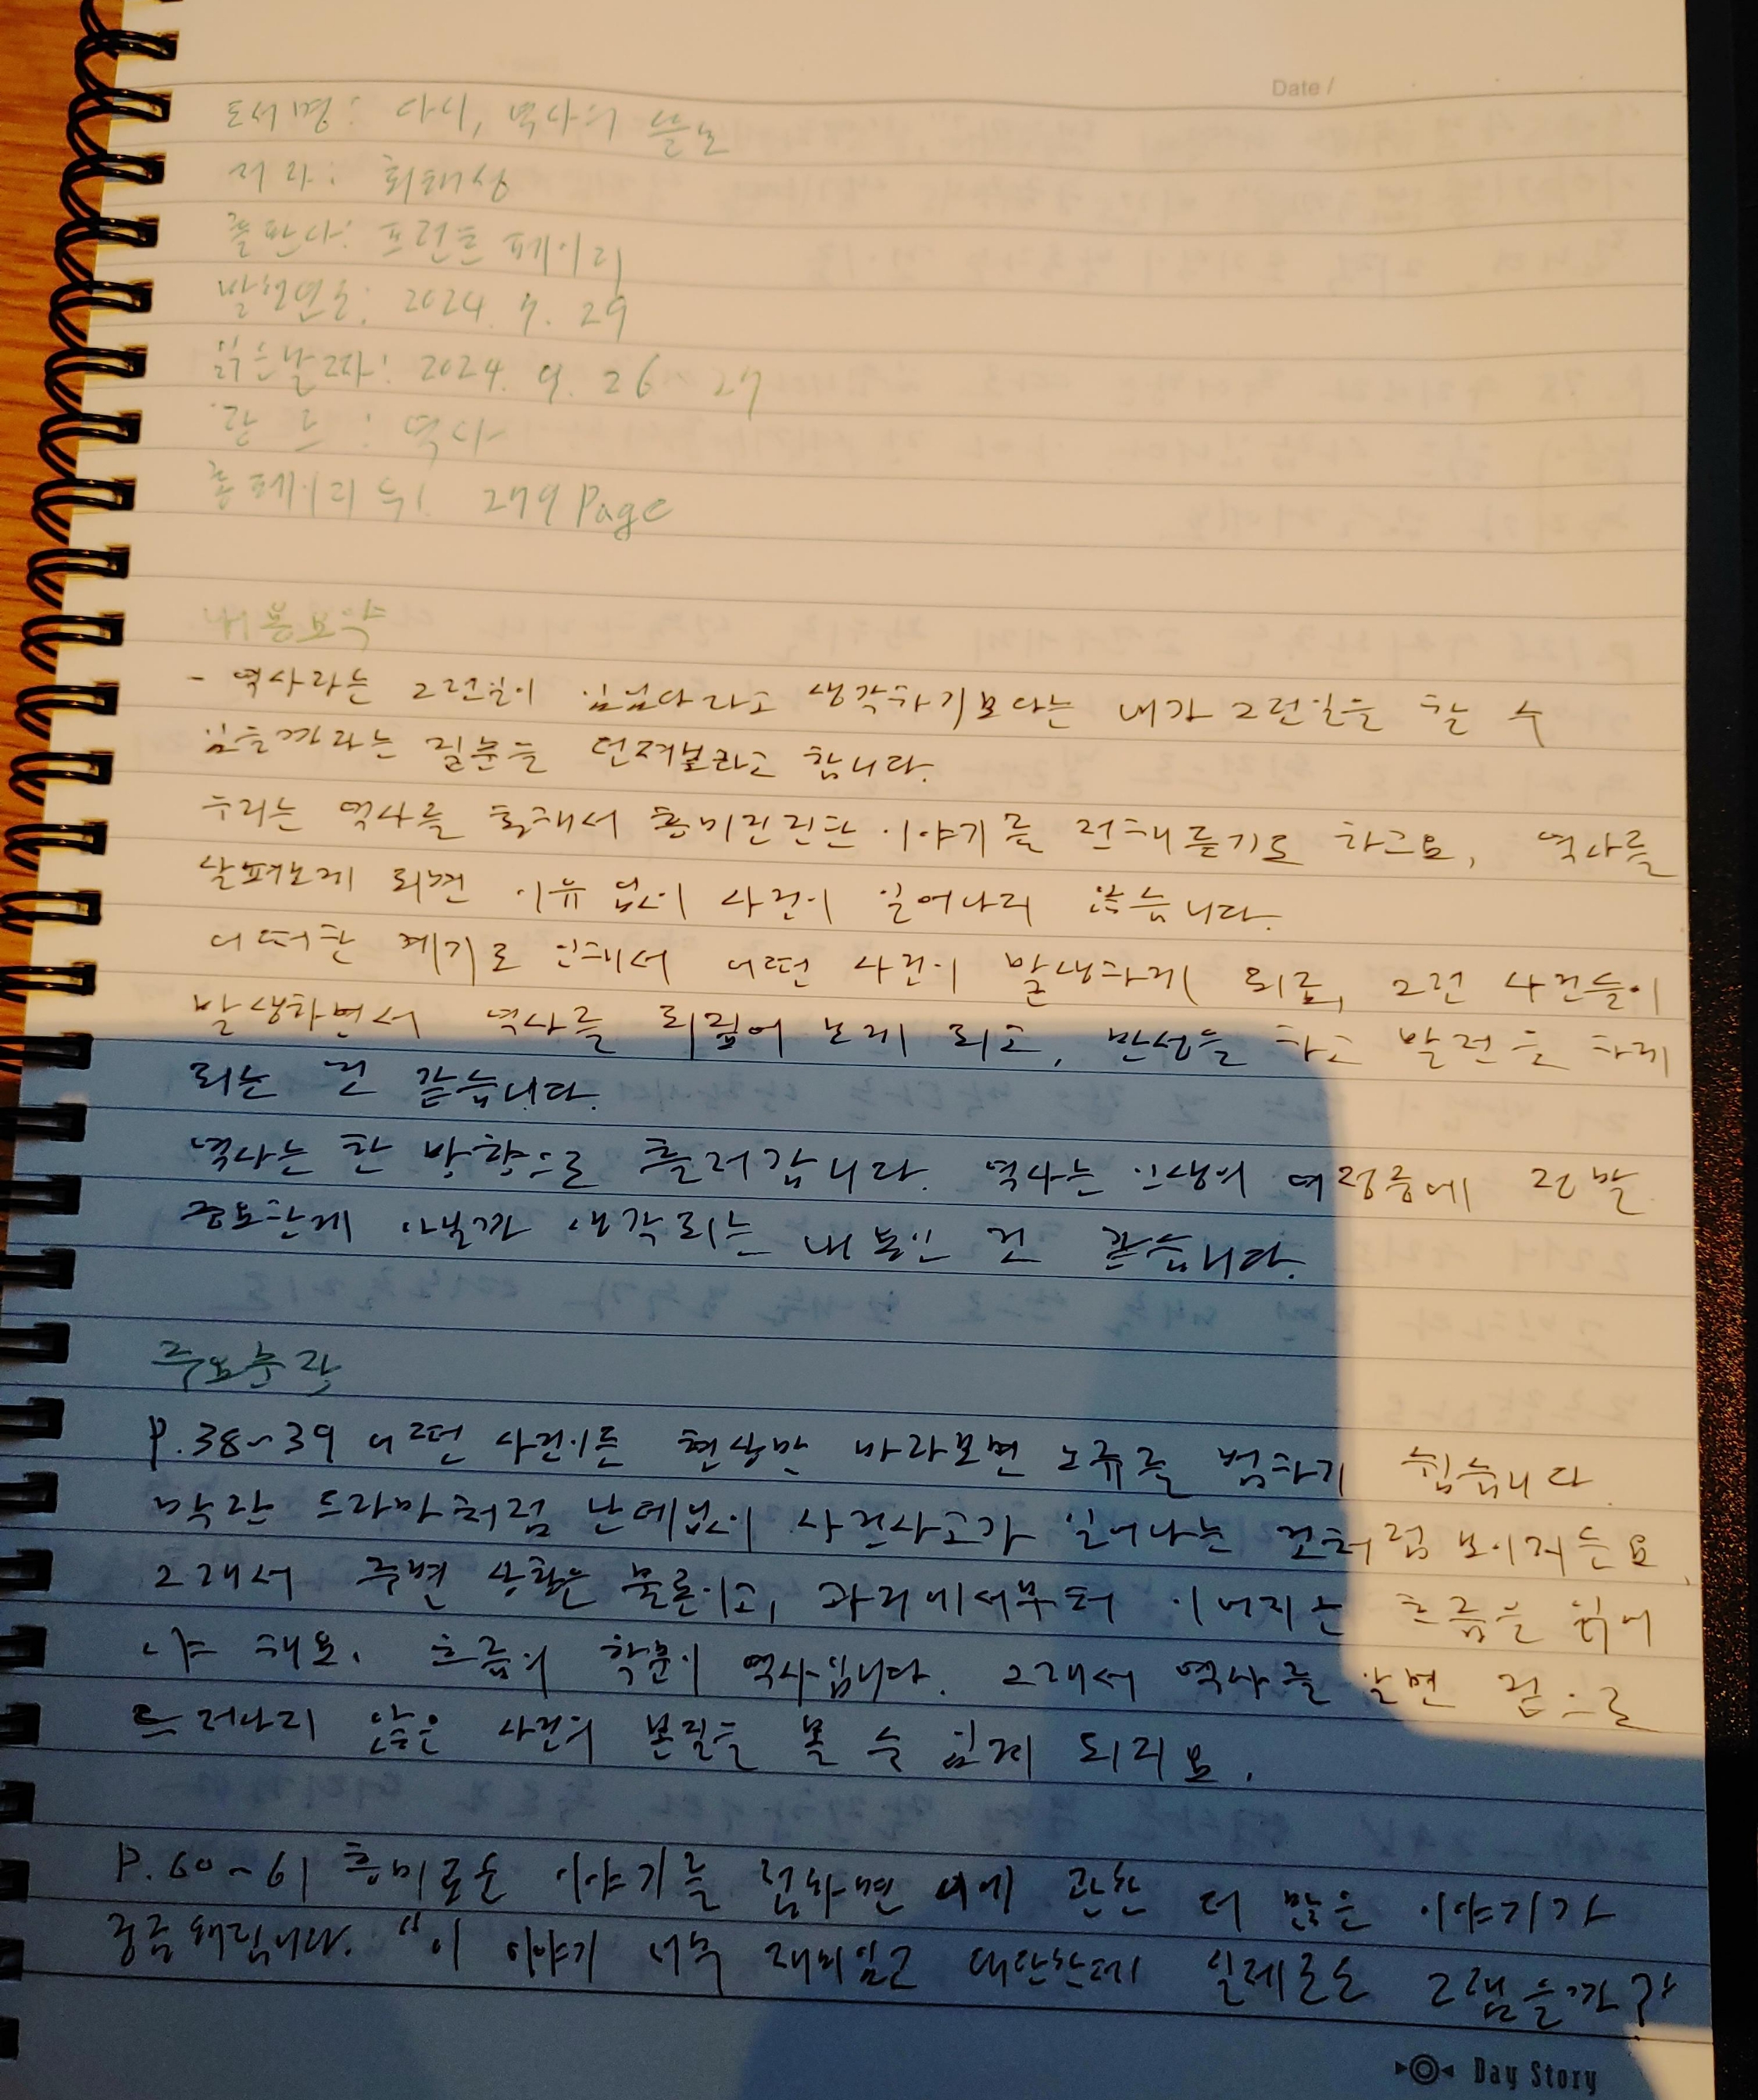 Date /
도서명: 다시, 역사의 쓸모
저자: 최태성
출판사: 프런트 페이지
발행연도: 2024. 7. 29
읽은날짜: 2024. 9. 26 ~ 27
장르: 역사
총페이지수: 279 Page
내용요약
- 역사라는 그런일이 있었다라고 생각하기보다는 내가 그런일을 할 수
있을까라는 질문을 던져보라고 합니다.
우리는 역사를 통해서 흥미진진한 이야기를 전해 듣기도 하고요, 역사를
살펴보게 되면 이유 없이 사건이 일어나지 않습니다.
어떠한 계기로 인해서 어떤 사건이 발생하게 되고, 그런 사건들이
발생하면서 역사를 되짚어 보게 되고, 반성을 하고 발전을 하게
되는 것 같습니다.
역사는 한 방향으로 흘러갑니다. 역사는 인생의 여정중에 정말
중요한게 아닐까 생각되는 내용인 것 같습니다.
주요문장
P.38~39 어떤 사건이든 현상만 바라보면 오류를 범하기 쉽습니다.
막장 드라마처럼 난데없이 사건사고가 일어나는 것처럼 보이거든요.
그래서 주변 상황은 물론이고, 과거에서부터 이어지는 흐름을 읽어
야 해요. 흐름의 학문이 역사입니다. 그래서 역사를 알면 겉으로
드러나지 않은 사건의 본질을 볼 수 있게 되지요.
P.60~61 흥미로운 이야기를 접하면 이에 관한 더 많은 이야기가
궁금해집니다. "이 이야기 너무 재미있고 대단한데 실제로도 그랬을까?"
Day Story